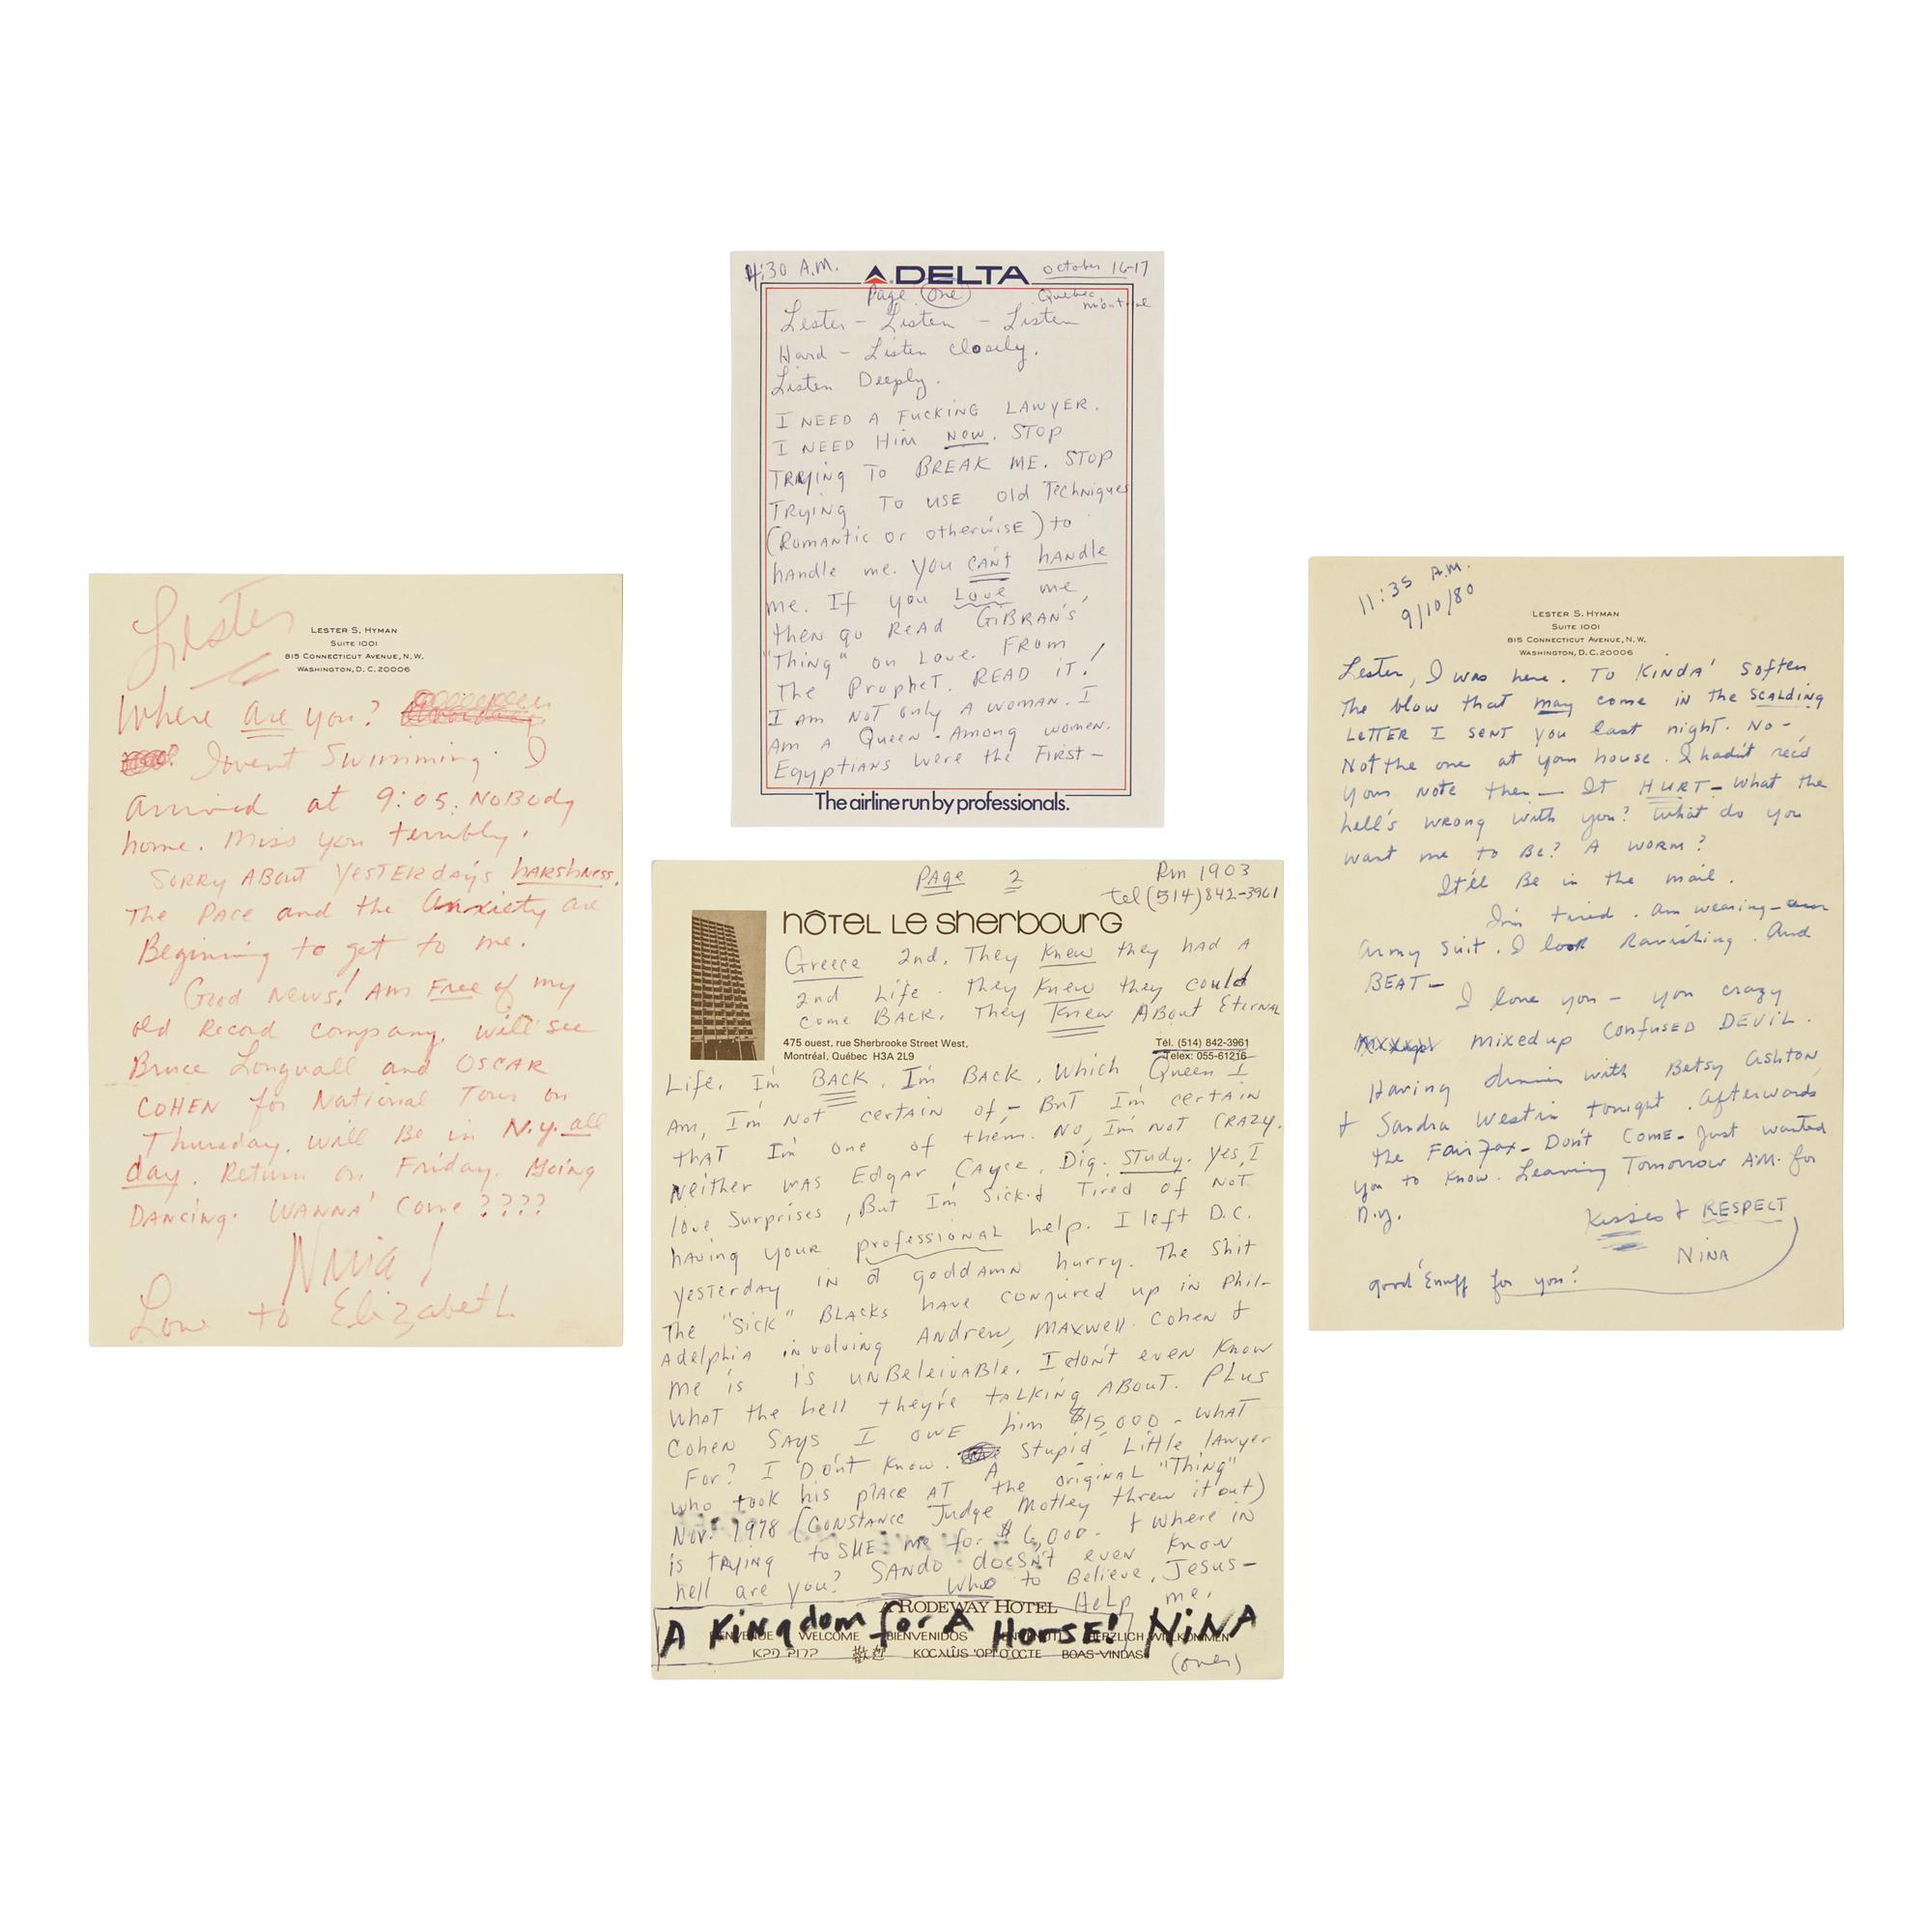 4:30 A.M.
DELTA
October 16-17
Page One
Quebec
Montreal
Lester - Listen - Listen
Hard - Listen closely.
Listen Deeply.
I NEED A FUCKING LAWYER.
I NEED HIM NOW. STOP
TRYING TO BREAK ME. STOP
TRYING TO USE old Techniques
(Romantic or otherwise) to
handle me. You CAN'T handle
me. If you Love me,
then go READ GIBRAN'S
"Thing" on Love. FROM
The Prophet. READ it!
I AM NOT only A WOMAN. I
AM A Queen. Among women.
Egyptians were the FIRST -
The airline run by professionals.
Lester
LESTER S. HYMAN
SUITE 1001
815 CONNECTICUT AVENUE, N.W.
WASHINGTON, D.C. 20006
Where are you?
I went Swimming. I
arrived at 9:05. NOBODY
home. Miss you terribly.
SORRY ABOUT YESTERDAY'S HARSHNESS.
The PACE and the Anxiety are
Beginning to get to me.
Good News! Am Free of my
old Record company. will see
Bruce Longuall and OSCAR
COHEN for National Tour on
Thursday. will Be in N.Y. all
day. Return on Friday. Going
DANCING. WANNA' Come????
Nina!
Love to Elizabeth
11:35 A.M.
9/10/80
LESTER S. HYMAN
SUITE 1001
815 CONNECTICUT AVENUE, N.W.
WASHINGTON, D.C. 20006
Lester, I was here. To KINDA' soften
the blow that may come in the SCALDING
LETTER I sent you last night. No -
Not the one at your house. I hadn't rec'd
your note then - It HURT - What the
hell's wrong with you? What do you
want me to Be? A WORM?
It'll Be in the mail.
I'm tired. Am wearing
army suit. I look Ravishing. And
BEAT -
I love you - you crazy
mixed up Confused DEVIL.
Having dinner with Betsy Ashton,
+ Sandra Westin tonight. Afterwards
the Fairfax - Don't COME - Just wanted
you to know. Leaving Tomorrow A.M. for
N.Y.
Kisses + RESPECT
NINA
good 'Enuff for you?
PAGE 2
Rm 1903
tel (514) 842-3961
hôtel Le sherbourg
Greece 2nd. They Knew they had A
2nd Life. they Knew they could
come BACK. They Knew ABout Eternal
475 ouest, rue Sherbrooke Street West,
Montréal, Québec H3A 2L9
Tél. (514) 842-3961
Telex: 055-61216
Life. I'm BACK. I'm BACK. Which Queen I
Am, I'm Not certain of - But I'm certain
that I'm one of them. NO, I'm NOT CRAZY.
Neither was Edgar Cayce. Dig. STUDY. Yes, I
love Surprises, But I'm Sick + Tired of NOT
having your professional help. I left D.C.
yesterday in a goddAmn hurry. The Shit
The "Sick" BLACKS have conjured up in Phil-
Adelphia involving Andrew, MAXwell Cohen +
me is is unBeleivABle. I don't even Know
What the hell they're tALKing ABOUT. PLus
Cohen SAYS I OWE him $15,000 - WHAT
FOR? I DON'T Know. A Stupid Little lawyer
who took his place AT the original "Thing"
Nov. 1978 (CONSTANCE Judge Motley threw it out)
is trying to SUE me for $6,000 - + where in
hell are you? SANdo doesn't even know
Who to Believe. Jesus -
HeLp me.
A RODEWAY HOTEL
A Kingdom for A HORSE! NINA
BIENVENUE WELCOME BIENVENIDOS BENVENUTI HERZLICH WILLKOMMEN
BOAS-VINDAS
(over)